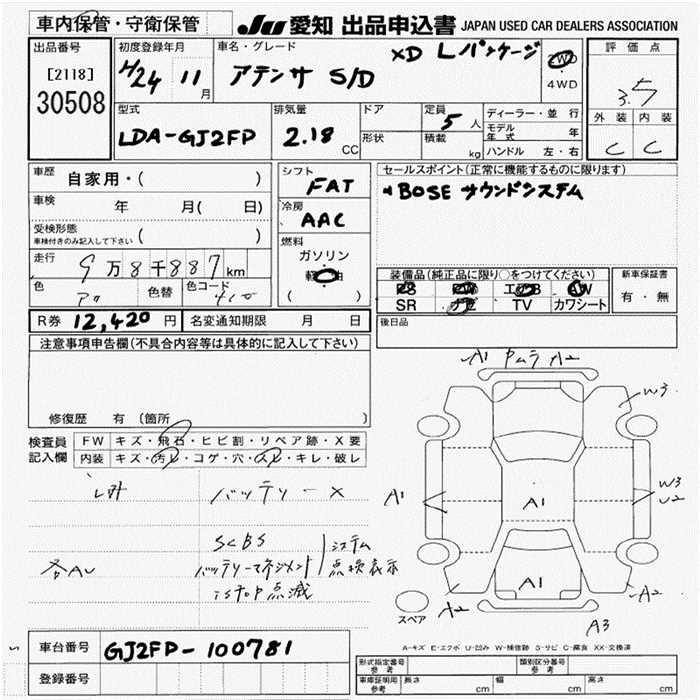 車内保管・守衛保管
JU 愛知 出品申込書 JAPAN USED CAR DEALERS ASSOCIATION
出品番号
[2118]
30508
初度登録年月
H24 11月
車名・グレード
アテンザ S/D XD Lパッケージ
2WD
4WD
評価点
3.5
外装 内装
C C
型式
LDA-GJ2FP
排気量
2.18 CC
ドア
形状
定員 5人
積載 kg
ディーラー・並行
モデル年式 年
ハンドル 左・右
車歴 自家用・( )
車検 年 月( 日)
受検形態
車検付きのみ記入して下さい ( )
走行 9万8千887km
色 色替 色コード
シフト
FAT
冷房
AAC
燃料
ガソリン
軽油
( )
セールスポイント(正常に機能するものに限ります)
BOSE サウンドシステム
装備品(純正品に限り○をつけてください)
PS PW エアB AW
SR ナビ TV カワシート
新車保証書
有・無
R券 12,420円 名変通知期限 月 日
後日品
注意事項申告欄(不具合内容等は具体的に記入して下さい)
修復歴 有(箇所 )
検査員
記入欄
FW キズ・飛石・ヒビ割・リペア跡・X要
内装 キズ・汚レ・コゲ・穴・スレ・キレ・破レ
バッテリーX
SCBS
バッテリーマネジメント
i-stop点滅
システム
点検表示
各AU
A1 ムラ A2
W3
A1
A1
W3
U2
A1
A2
A2
A3
スペア
A-キズ E-エクボ U-凹み W-補修跡 S-サビ C-腐食 XX-交換済
車台番号 GJ2FP-100781
登録番号
形式指定番号
参考
類別区分番号
参考
車庫証明用
参考
長さ cm 幅 cm 高さ cm